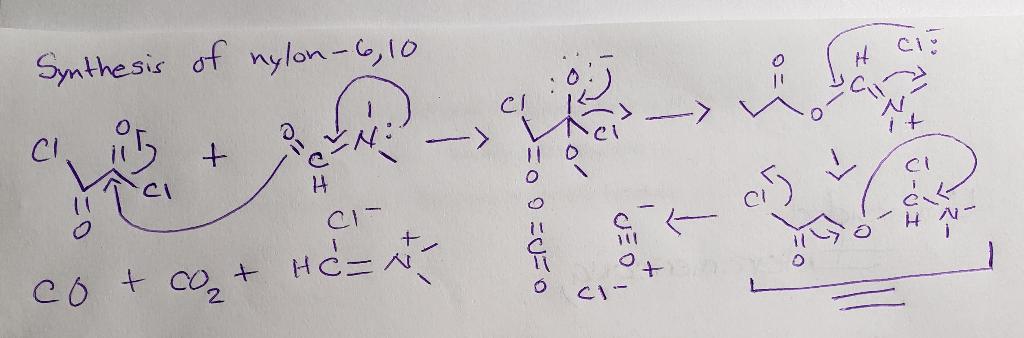 Synthesis of nylon-6,10
Cl O Cl O + O C H N: → Cl :O:⁻ Cl O O → O O H C N + Cl⁻:
Cl O O Cl C H N
← C⁻ ≡ O + Cl⁻
O = C = O
CO + CO₂ + Cl⁻ HC=N⁺